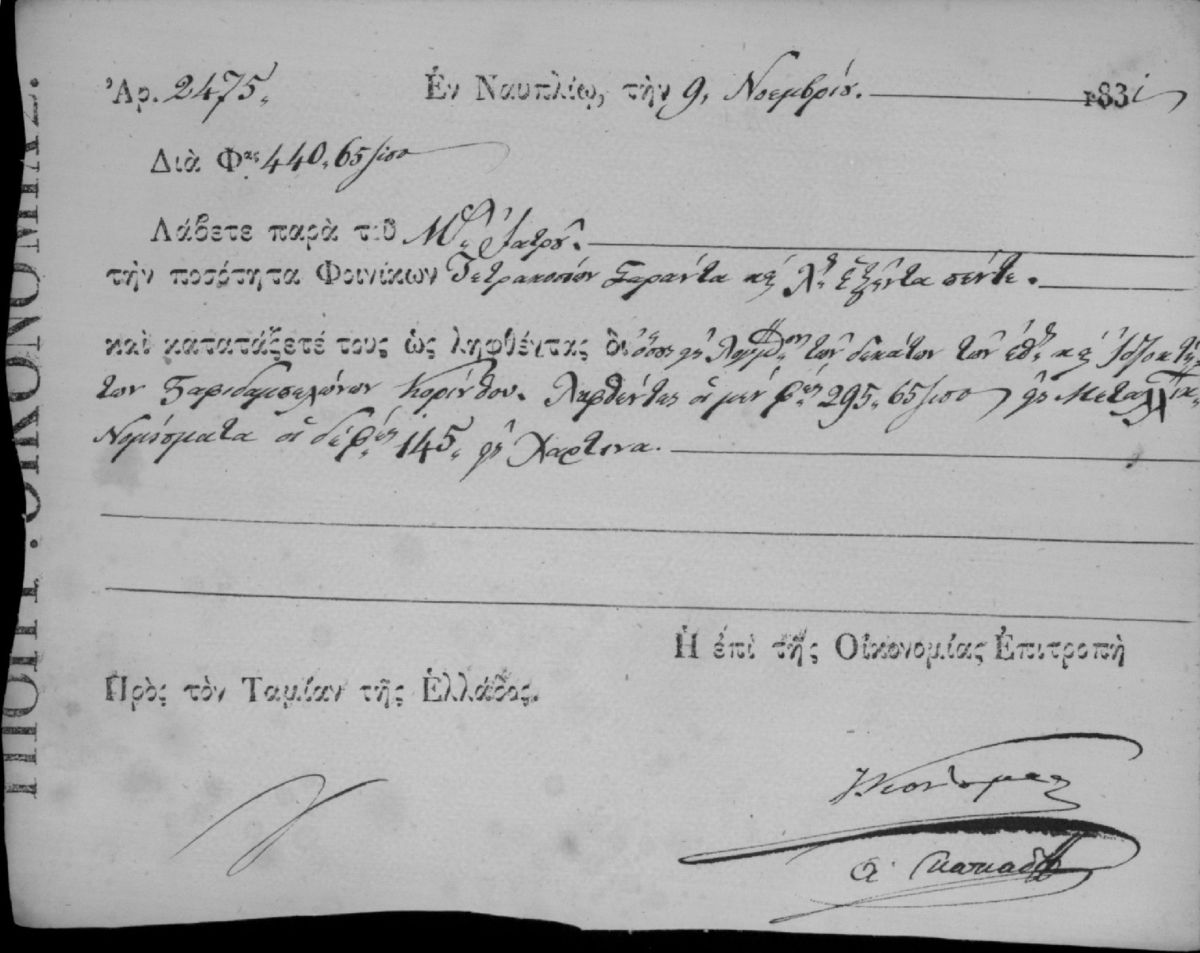 Ἀρ. 2475. Ἐν Ναυπλίῳ, τὴν 9. Νοεμβρίου. 1831
Διὰ Φκας 440.65
Λάβετε παρὰ τοῦ Μ. Ἰατροῦ.
τὴν ποσότητα Φοινίκων Τετρακοσίων Σαράντα καὶ Λτ. ἑξήντα πέντε.
καὶ κατατάξετέ τους ὡς ληφθέντας δι' τῶν δεκάτων τῶν
των Σταφιδαμπελώνων Κορίνθου. Ληφθέντες οἱ μὲν 295.65 εἰς Μεταλλικὰ
Νομίσματα οἱ δὲ 145. εἰς Χάρτινα.
Ἡ ἐπὶ τῆς Οἰκονομίας Ἐπιτροπὴ
Πρὸς τὸν Ταμίαν τῆς Ἑλλάδος.